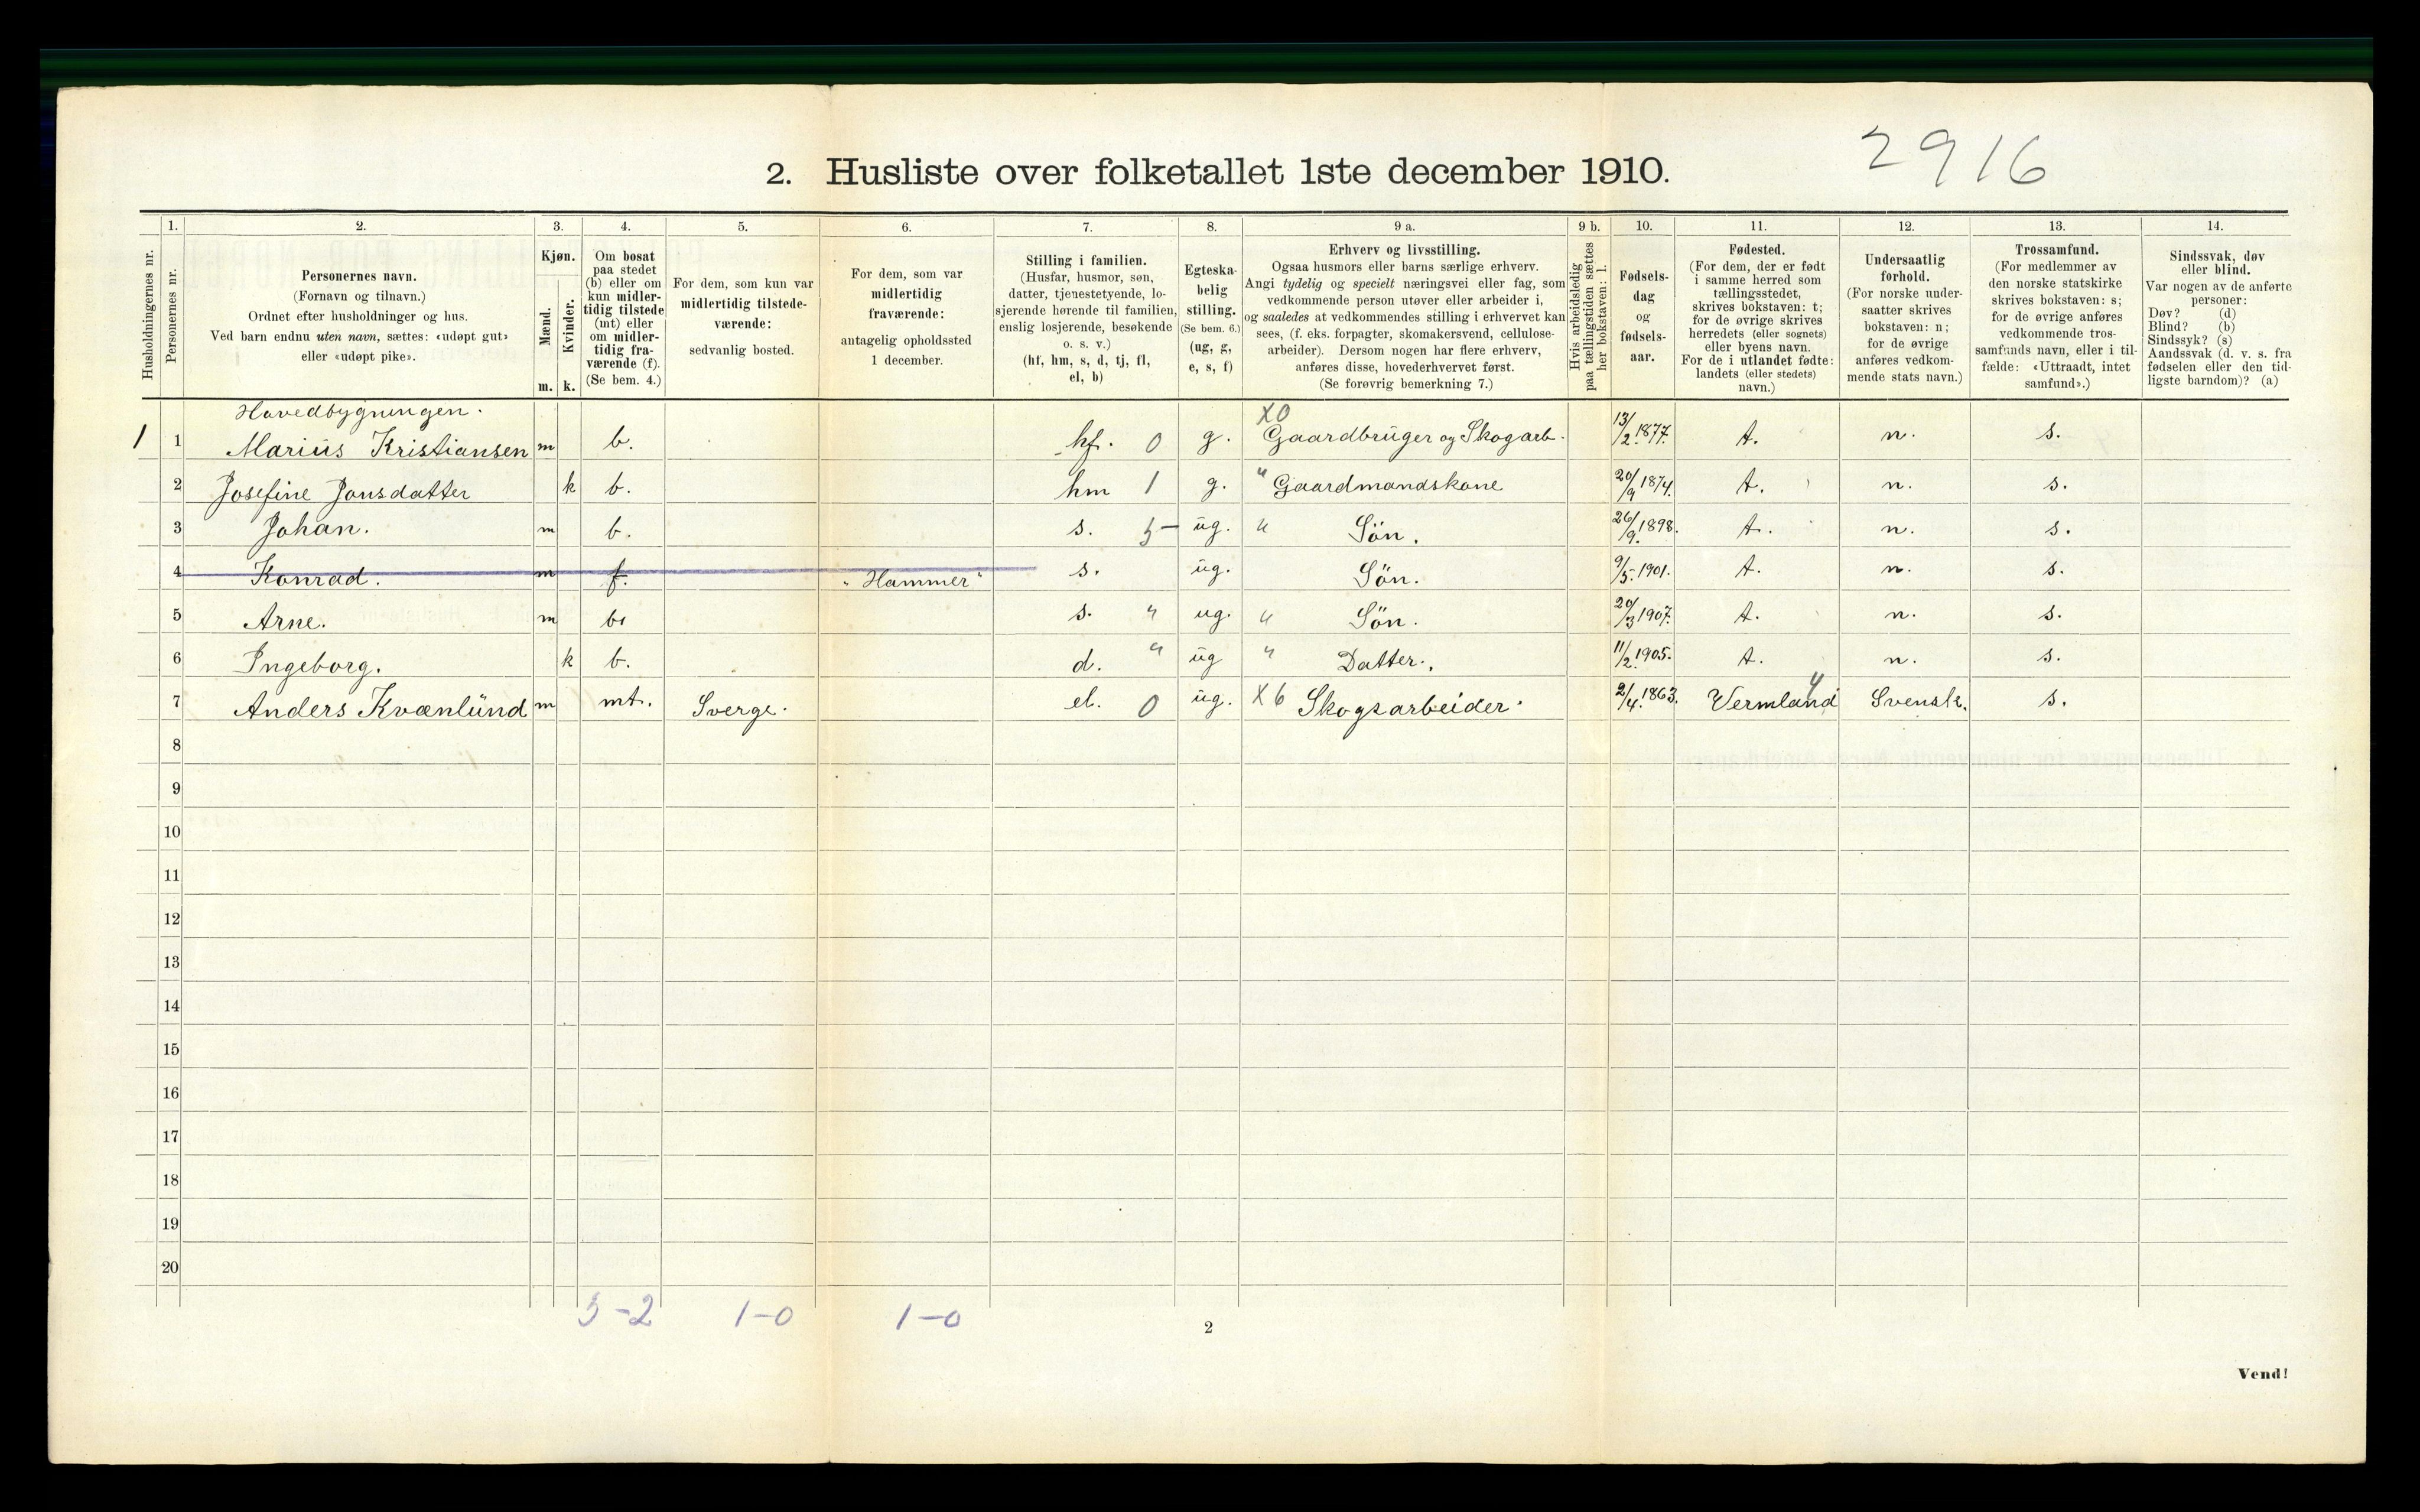 2. Husliste over folketallet 1ste december 1910.
2916
1. 2. 3. 4. 5. 6. 7. 8. 9 a. 9 b. 10. 11. 12. 13. 14.
Husholdningernes nr.
Personernes nr.
Personernes navn.
(Fornavn og tilnavn.)
Ordnet efter husholdninger og hus.
Ved barn endnu uten navn, sættes: «udøpt gut»
eller «udøpt pike».
Kjøn.
Mænd.
Kvinder.
m. k.
Om bosat
paa stedet
(b) eller om
kun midler-
tidig tilstede
(mt) eller
om midler-
tidig fra-
værende (f).
(Se bem. 4.)
For dem, som kun var
midlertidig tilstede-
værende:
sedvanlig bosted.
For dem, som var
midlertidig
fraværende:
antagelig opholdssted
1 december.
Stilling i familien.
(Husfar, husmor, søn,
datter, tjenestetyende, lo-
sjerende hørende til familien,
enslig losjerende, besøkende
o. s. v.)
(hf, hm, s, d, tj, fl,
el, b)
Egteska-
belig
stilling.
(Se bem. 6.)
(ug, g,
e, s, f)
Erhverv og livsstilling.
Ogsaa husmors eller barns særlige erhverv.
Angi tydelig og specielt næringsvei eller fag, som
vedkommende person utøver eller arbeider i,
og saaledes at vedkommendes stilling i erhvervet kan
sees, (f. eks. forpagter, skomakersvend, cellulose-
arbeider). Dersom nogen har flere erhverv,
anføres disse, hovederhvervet først.
(Se forøvrig bemerkning 7.)
Hvis arbeidsledig
paa tællingstiden sættes
her bokstaven: l.
Fødsels-
dag
og
fødsels-
aar.
Fødested.
(For dem, der er født
i samme herred som
tællingsstedet,
skrives bokstaven: t;
for de øvrige skrives
herredets (eller sognets)
eller byens navn.
For de i utlandet fødte:
landets (eller stedets)
navn.)
Undersaatlig
forhold.
(For norske under-
saatter skrives
bokstaven: n;
for de øvrige
anføres vedkom-
mende stats navn.)
Trossamfund.
(For medlemmer av
den norske statskirke
skrives bokstaven: s;
for de øvrige anføres
vedkommende tros-
samfunds navn, eller i til-
fælde: «Uttraadt, intet
samfund».)
Sindssvak, døv
eller blind.
Var nogen av de anførte
personer:
Døv? (d)
Blind? (b)
Sindssyk? (s)
Aandssvak (d. v. s. fra
fødselen eller den tid-
ligste barndom)? (a)
Hovedbygningen.
X0
1 1 Marius Kristiansen m b. hf. 0 g. Gaardbruger og Skogarb. 13/2 1877. t. n. s.
2 Josefine Jonsdatter k b. hm 1 g. " Gaardmandskone 20/9 1874. t. n. s.
3 Johan. m b. s. 5 ug. " Søn. 26/9. 1898. t. n. s.
4 Konrad. m f. "Hammer" s. ug. Søn. 9/5. 1901. t. n. s.
5 Arne. m b. s. " ug. " Søn. 20/3 1907. t. n. s.
6 Ingeborg. k b. d. " ug " Datter. 11/2. 1905. t. n. s.
7 Anders Kvænlund m mt. Sverge. el. 0 ug. X6 Skogsarbeider. 2/4. 1863. Vermland 4 Svensk. s.
8
9
10
11
12
13
14
15
16
17
18
19
20
5-2 1-0 1-0
2
Vend!